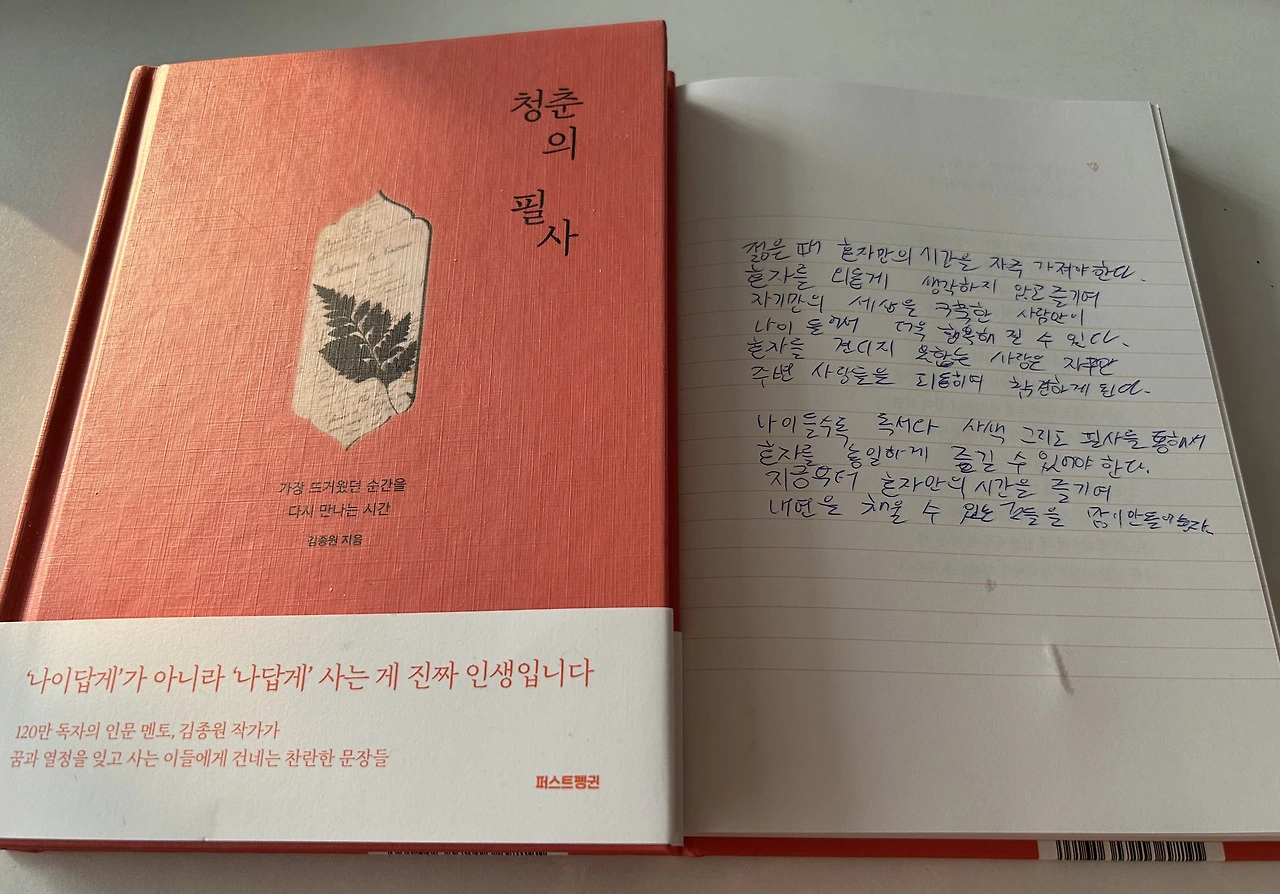 청춘
의
필
사
가장 뜨거웠던 순간을
다시 만나는 시간
김종원 지음
'나이답게'가 아니라 '나답게' 사는 게 진짜 인생입니다
120만 독자의 인문 멘토, 김종원 작가가
꿈과 열정을 잊고 사는 이들에게 건네는 찬란한 문장들
퍼스트펭귄
젊은 때 혼자만의 시간을 자주 가져야 한다.
혼자를 외롭게 생각하지 않고 즐기며
자기만의 세상을 구축한 사람만이
나이 들어서 더욱 행복해 질 수 있다.
혼자를 견디지 못합는 사람은 자꾸만
주변 사람들을 괴롭히며 하게 된다.
나이 들수록 독서와 사색 그리고 필사를 통해서
혼자를 농밀하게 즐길 수 있어야 한다.
지금부터 혼자만의 시간을 즐기며
내면을 채울 수 있는 것들을 많이 만들어 놓자.